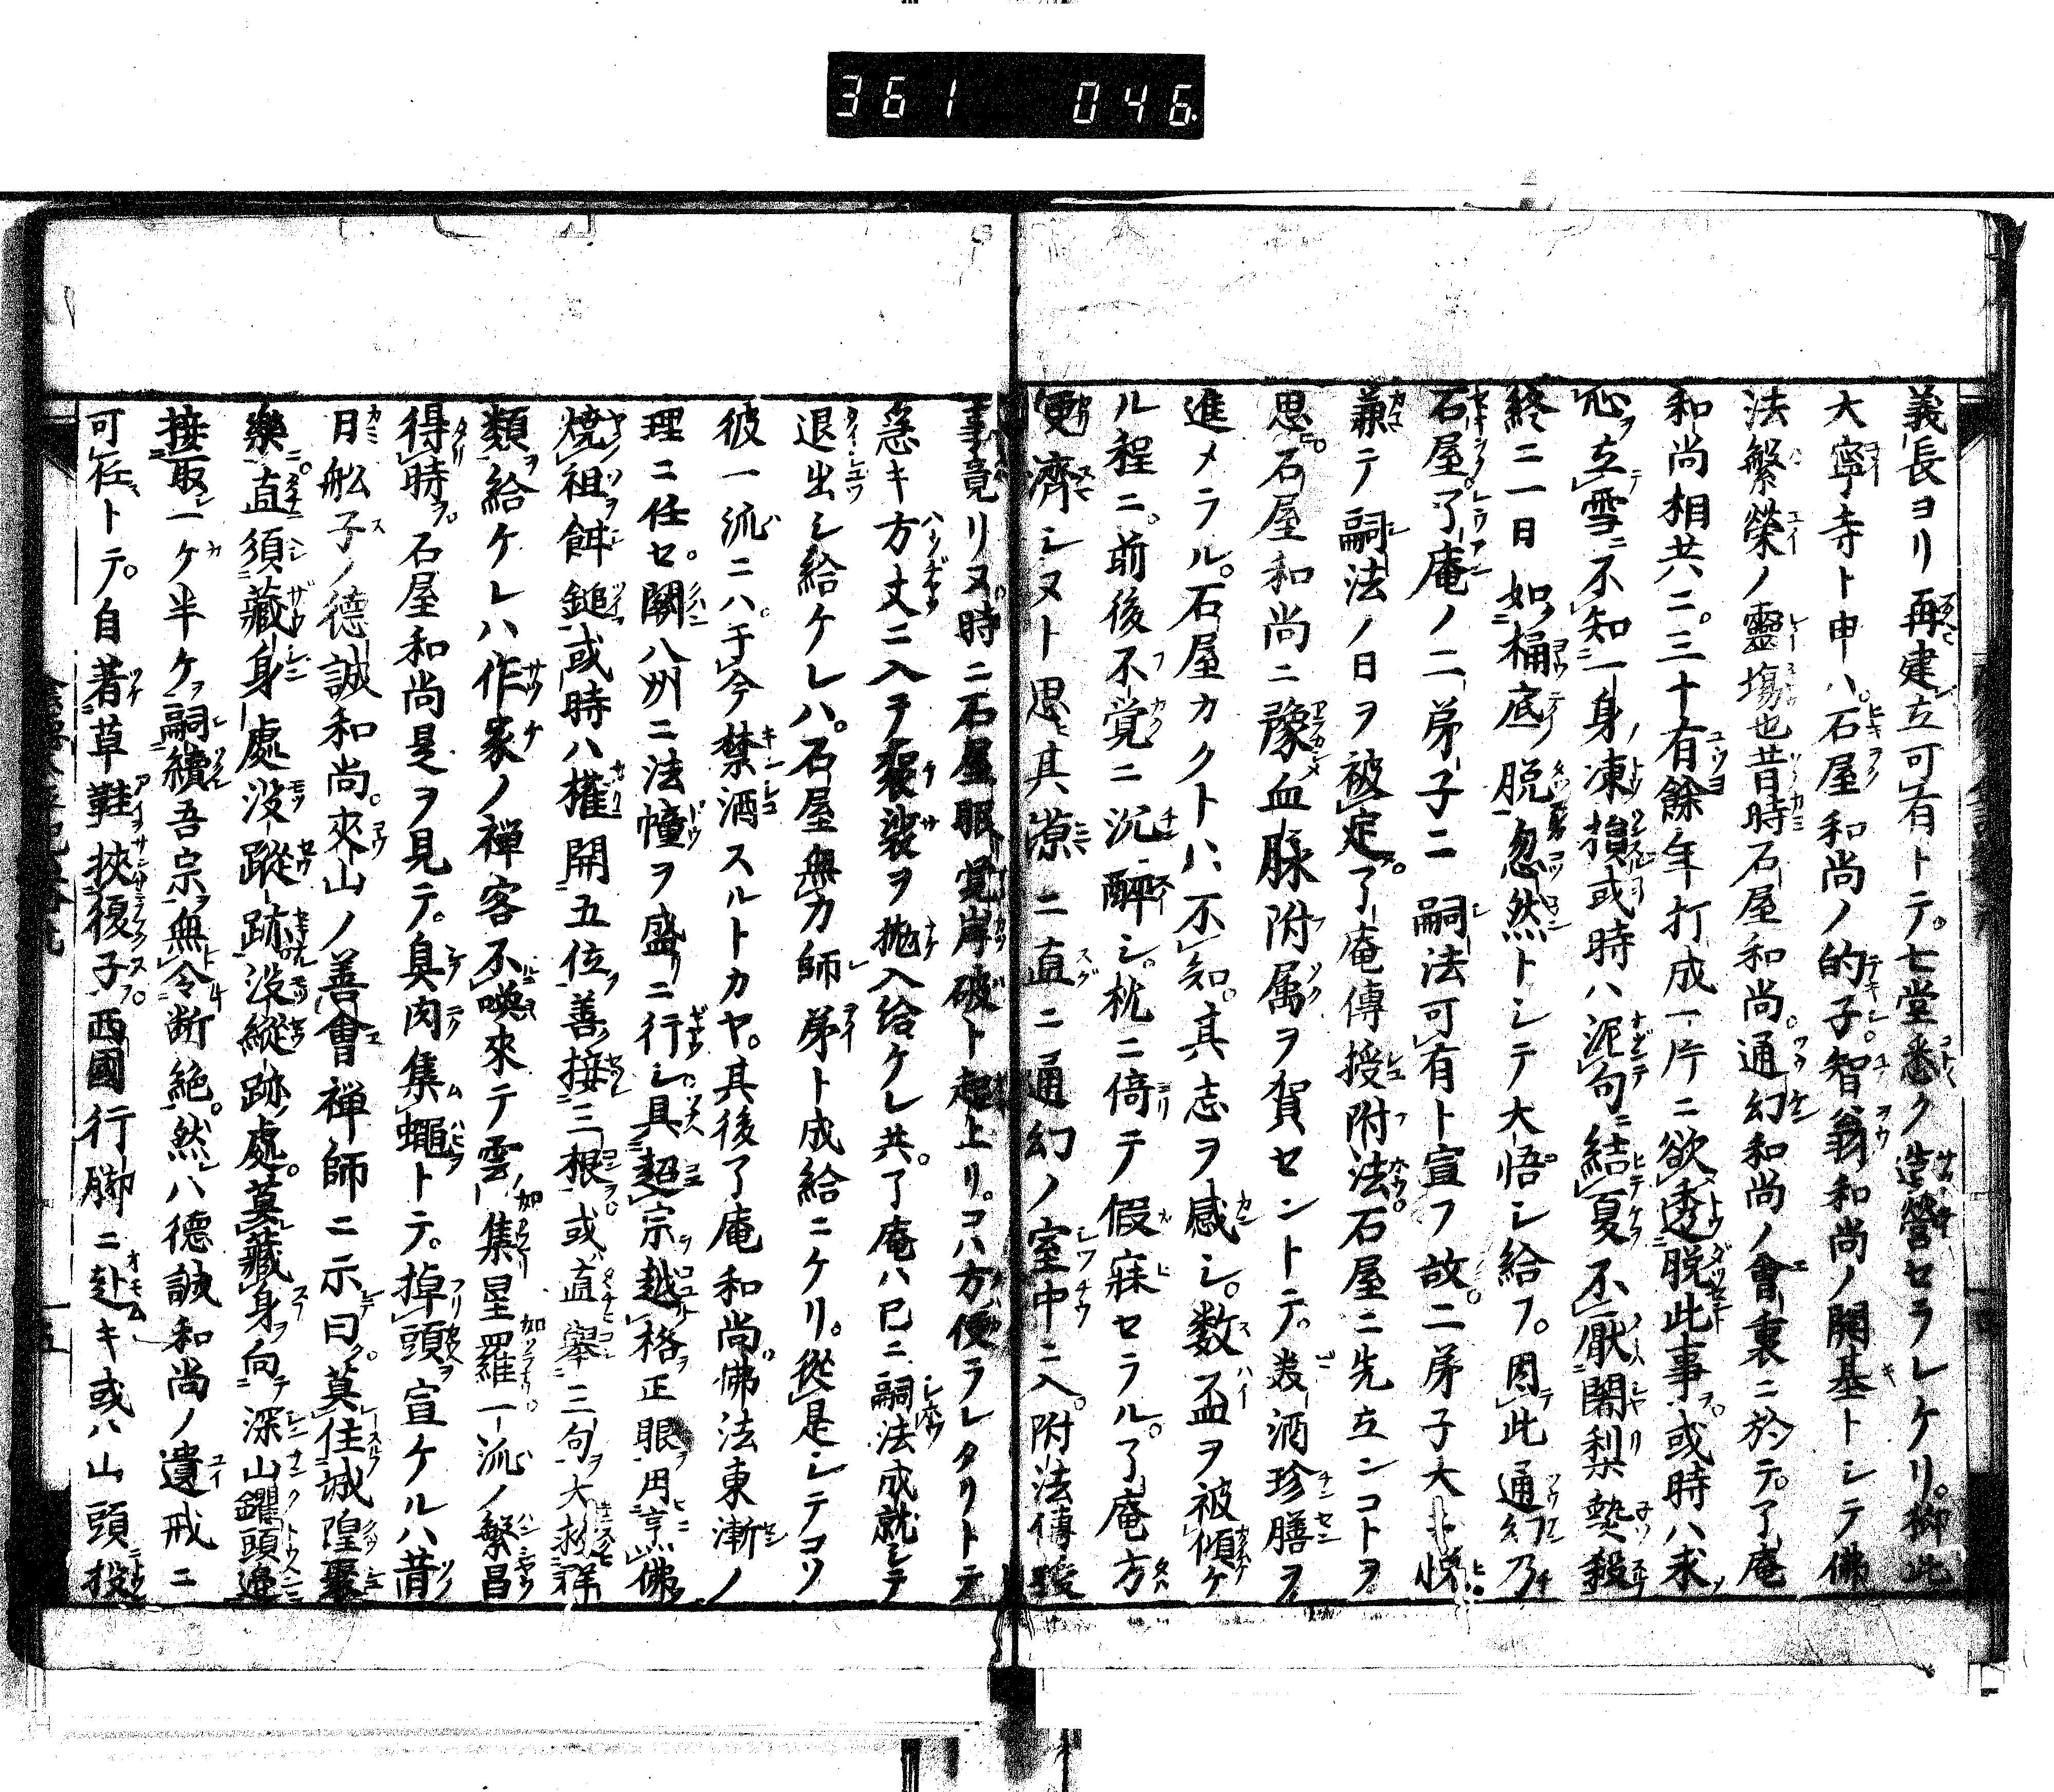 361 046
義長ヨリ再建立可有トテ。七堂悉ク造營セラレケリ。抑此
大寧寺ト申ハ。石屋和尚ノ的子。智翁和尚ノ開基トシテ佛
法繁榮ノ靈場也昔時石屋和尚。通幻和尚ノ會裏ニ於テ。了庵
和尚相共ニ。三十有餘年打成一片ニ欲透脱此事ヲ。或時ハ求
心ヲ立雪ニ不知一身ノ凍損或時ハ泥句ニ結夏不厭闍梨
終ニ一日如桶底ノ脱忽然トシテ大悟シ給フ。因テ此通幻乃
石屋。了庵ノ二弟子ニ嗣法可有ト宣フ故。二弟子大ニ悦
兼テ嗣法ノ日ヲ被定。了庵傳授附法。石屋ニ先立ンコトヲ
思。石屋和尚ニ豫血脉附属ヲ賀セントテ。酒珍膳ヲ
進メラル。石屋カクトハ不知。其志ヲ感シ。数盃ヲ被傾ケ
ル程ニ。前後不覚ニ沉醉シ。枕ニ倚テ假寐セラル。了庵方
便濟シヌト思ヒ其ニ直ニ通幻ノ室中ニ入。附法傳授
事竟リヌ。時ニ石屋眼覚岸破ト起上リ。コハ方便ラレタリトテ
急キ方丈ニ入ヲ袈裟ヲ抛入給ケレ共。了庵ハ已ニ嗣法成就シテ
退出シ給ケレハ。石屋無力師弟ト成給ニケリ。從是シテコソ
彼一流ニハ。于今禁酒スルトカヤ。其後了庵和尚。佛法東漸ノ
理ニ任セ。關八州ニ法幢ヲ盛リニ行シ。具超宗越格ヲ正眼ヲ佛
燒祖餌鎚或時ハ権開五位ヲ善接三根ヲ。或直舉三句ヲ大
類ヲ給ケレハ作家ノ禅客不喚來テ雲ノ如集星羅一流ノ繁昌
得時ヲ。石屋和尚是ヲ見テ。臭肉集蠅トテ。掉頭宣ケルハ昔
日舩子ノ德誠和尚。夾山ノ善會禅師ニ示曰ク。莫住城隍聚
樂ニ。直須藏身處没蹤跡没縱跡處。莫藏身ヲ向テ深山钁頭邊
接取一ケ半ケヲ嗣續吾宗ヲ無令断絶。然ハ德誠和尚ノ遺戒ニ
可任トテ。自著草鞋挾複子。西國行脚ニ赴キ或ハ山頭投